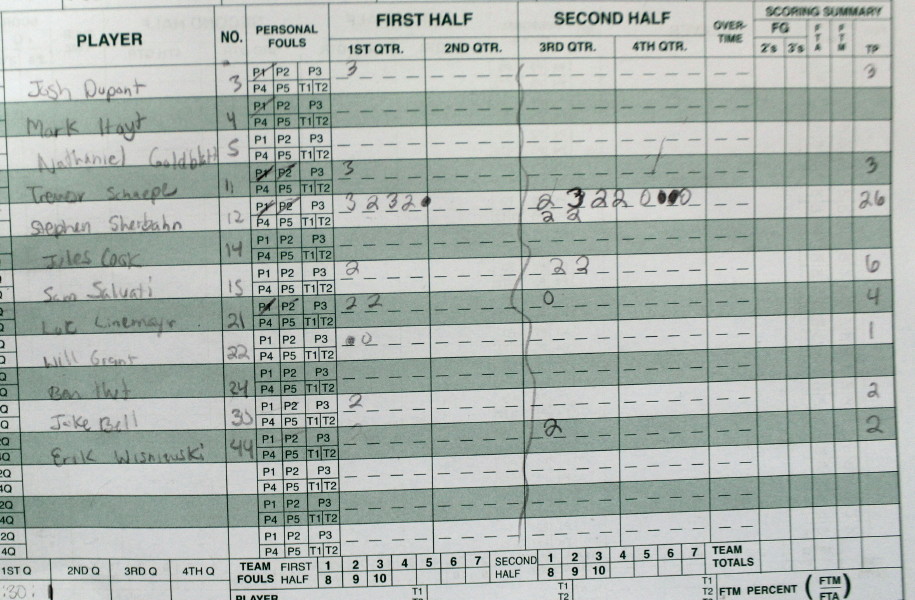 PLAYER NO. PERSONAL FOULS FIRST HALF 1ST QTR. 2ND QTR. SECOND HALF 3RD QTR. 4TH QTR. OVER-TIME SCORING SUMMARY FG 2's 3's FTA FTM TP
Josh Dupont 3 P1 P2 P3 3 3
P4 P5 T1 T2
Mark Hoyt 4 P1 P2 P3
P4 P5 T1 T2
Nathaniel Goldblatt 5 P1 P2 P3
P4 P5 T1 T2
Trevor Schaepe 11 P1 P2 P3 3 3
P4 P5 T1 T2
Stephen Sherbahn 12 P1 P2 P3 3 2 3 2 2 3 2 2 0 0 26
P4 P5 T1 T2 2 2
Jules Cook 14 P1 P2 P3
P4 P5 T1 T2
Sam Salvati 15 P1 P2 P3 2 2 2 6
P4 P5 T1 T2
Luc Linemayr 21 P1 P2 P3 2 2 0 4
P4 P5 T1 T2
Will Grant 22 P1 P2 P3 0 1
P4 P5 T1 T2
Ben 24 P1 P2 P3
P4 P5 T1 T2
Jake Bell 30 P1 P2 P3 2 2
P4 P5 T1 T2
Erik Wisniewski 44 P1 P2 P3 2 2
P4 P5 T1 T2
2Q P1 P2 P3
4Q P4 P5 T1 T2
2Q P1 P2 P3
4Q P4 P5 T1 T2
2Q P1 P2 P3
4Q P4 P5 T1 T2
1ST Q 2ND Q 3RD Q 4TH Q TEAM FOULS FIRST HALF 1 2 3 4 5 6 7 SECOND HALF 1 2 3 4 5 6 7 TEAM TOTALS
8 9 10 8 9 10
:30: PLAYER T1 T2 T1 T2 T1 T2 FTM PERCENT (FTM/FTA)